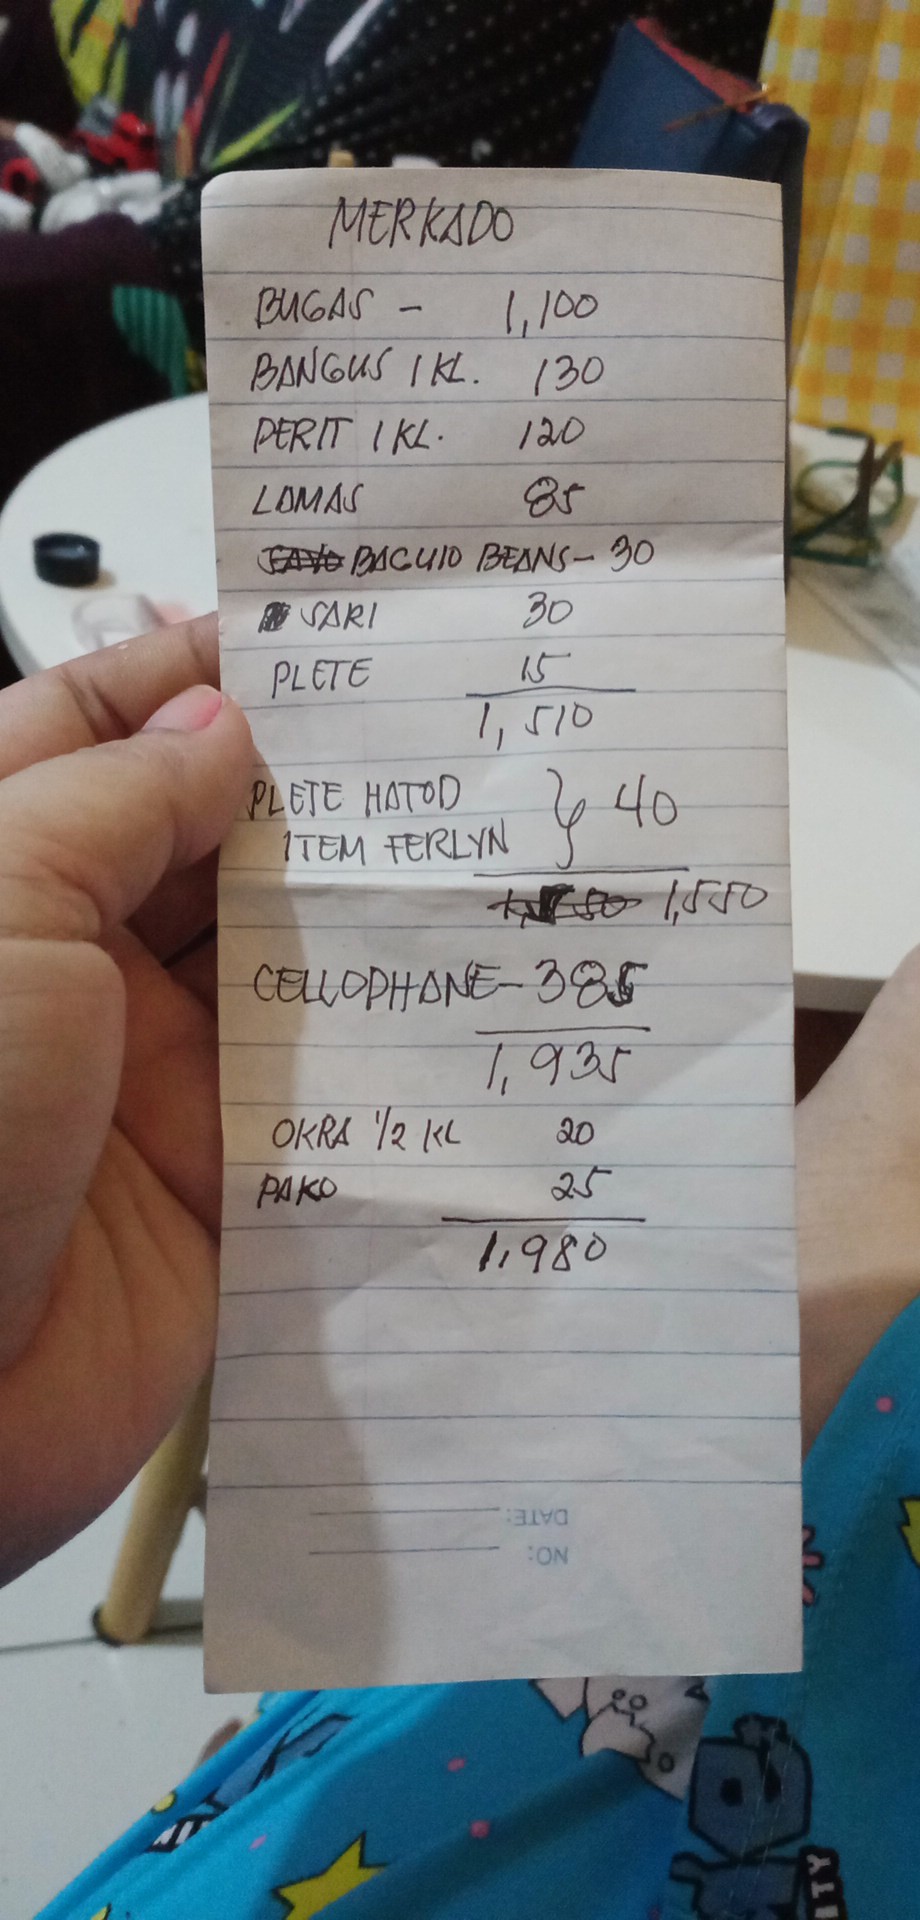 MERKADO
BUGAS - 1,100
BANGUS 1 KL. 130
PERIT 1 KL. 120
LAMAS 85
BAGUIO BEANS - 30
SARI 30
PLETE 15
1,510
PLETE HATOD } 40
ITEM FERLYN
1,550
CELLOPHANE - 385
1,935
OKRA 1/2 KL 20
PAKO 25
1,980
DATE:
NO: